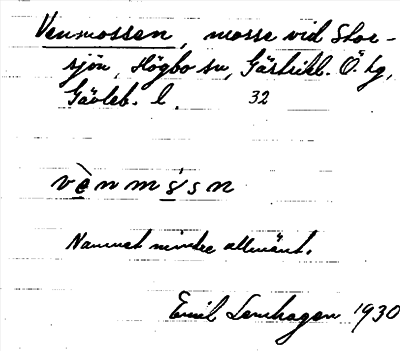 Venmossen, mosse vid Stor-
sjön, Högbo sn, Gästrikl. Ö. hg,
Gävleb. l. 32
vènmśsn
Namnet mindre allmänt.
Emil Lenhagen 1930